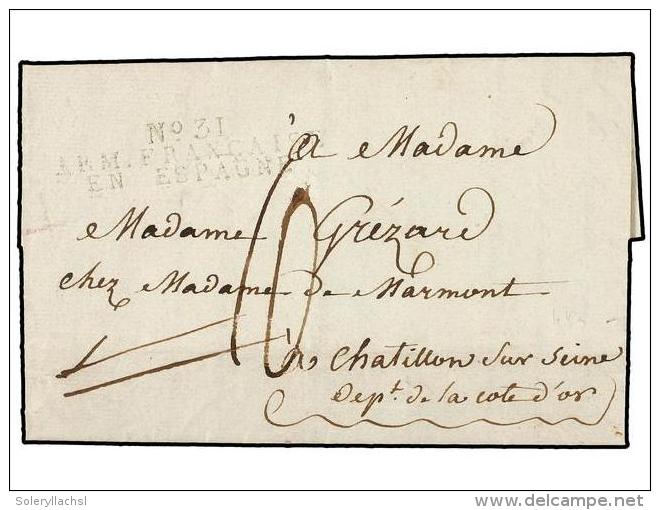 No 31
ARM. FRANÇAISE
EN ESPAGNE
à Madame
10
Madame Grézard
chez Madame de Marmont
à Chatillon sur Seine
Dept. de la cote d'or
Soleryllachsl
delcampe.net